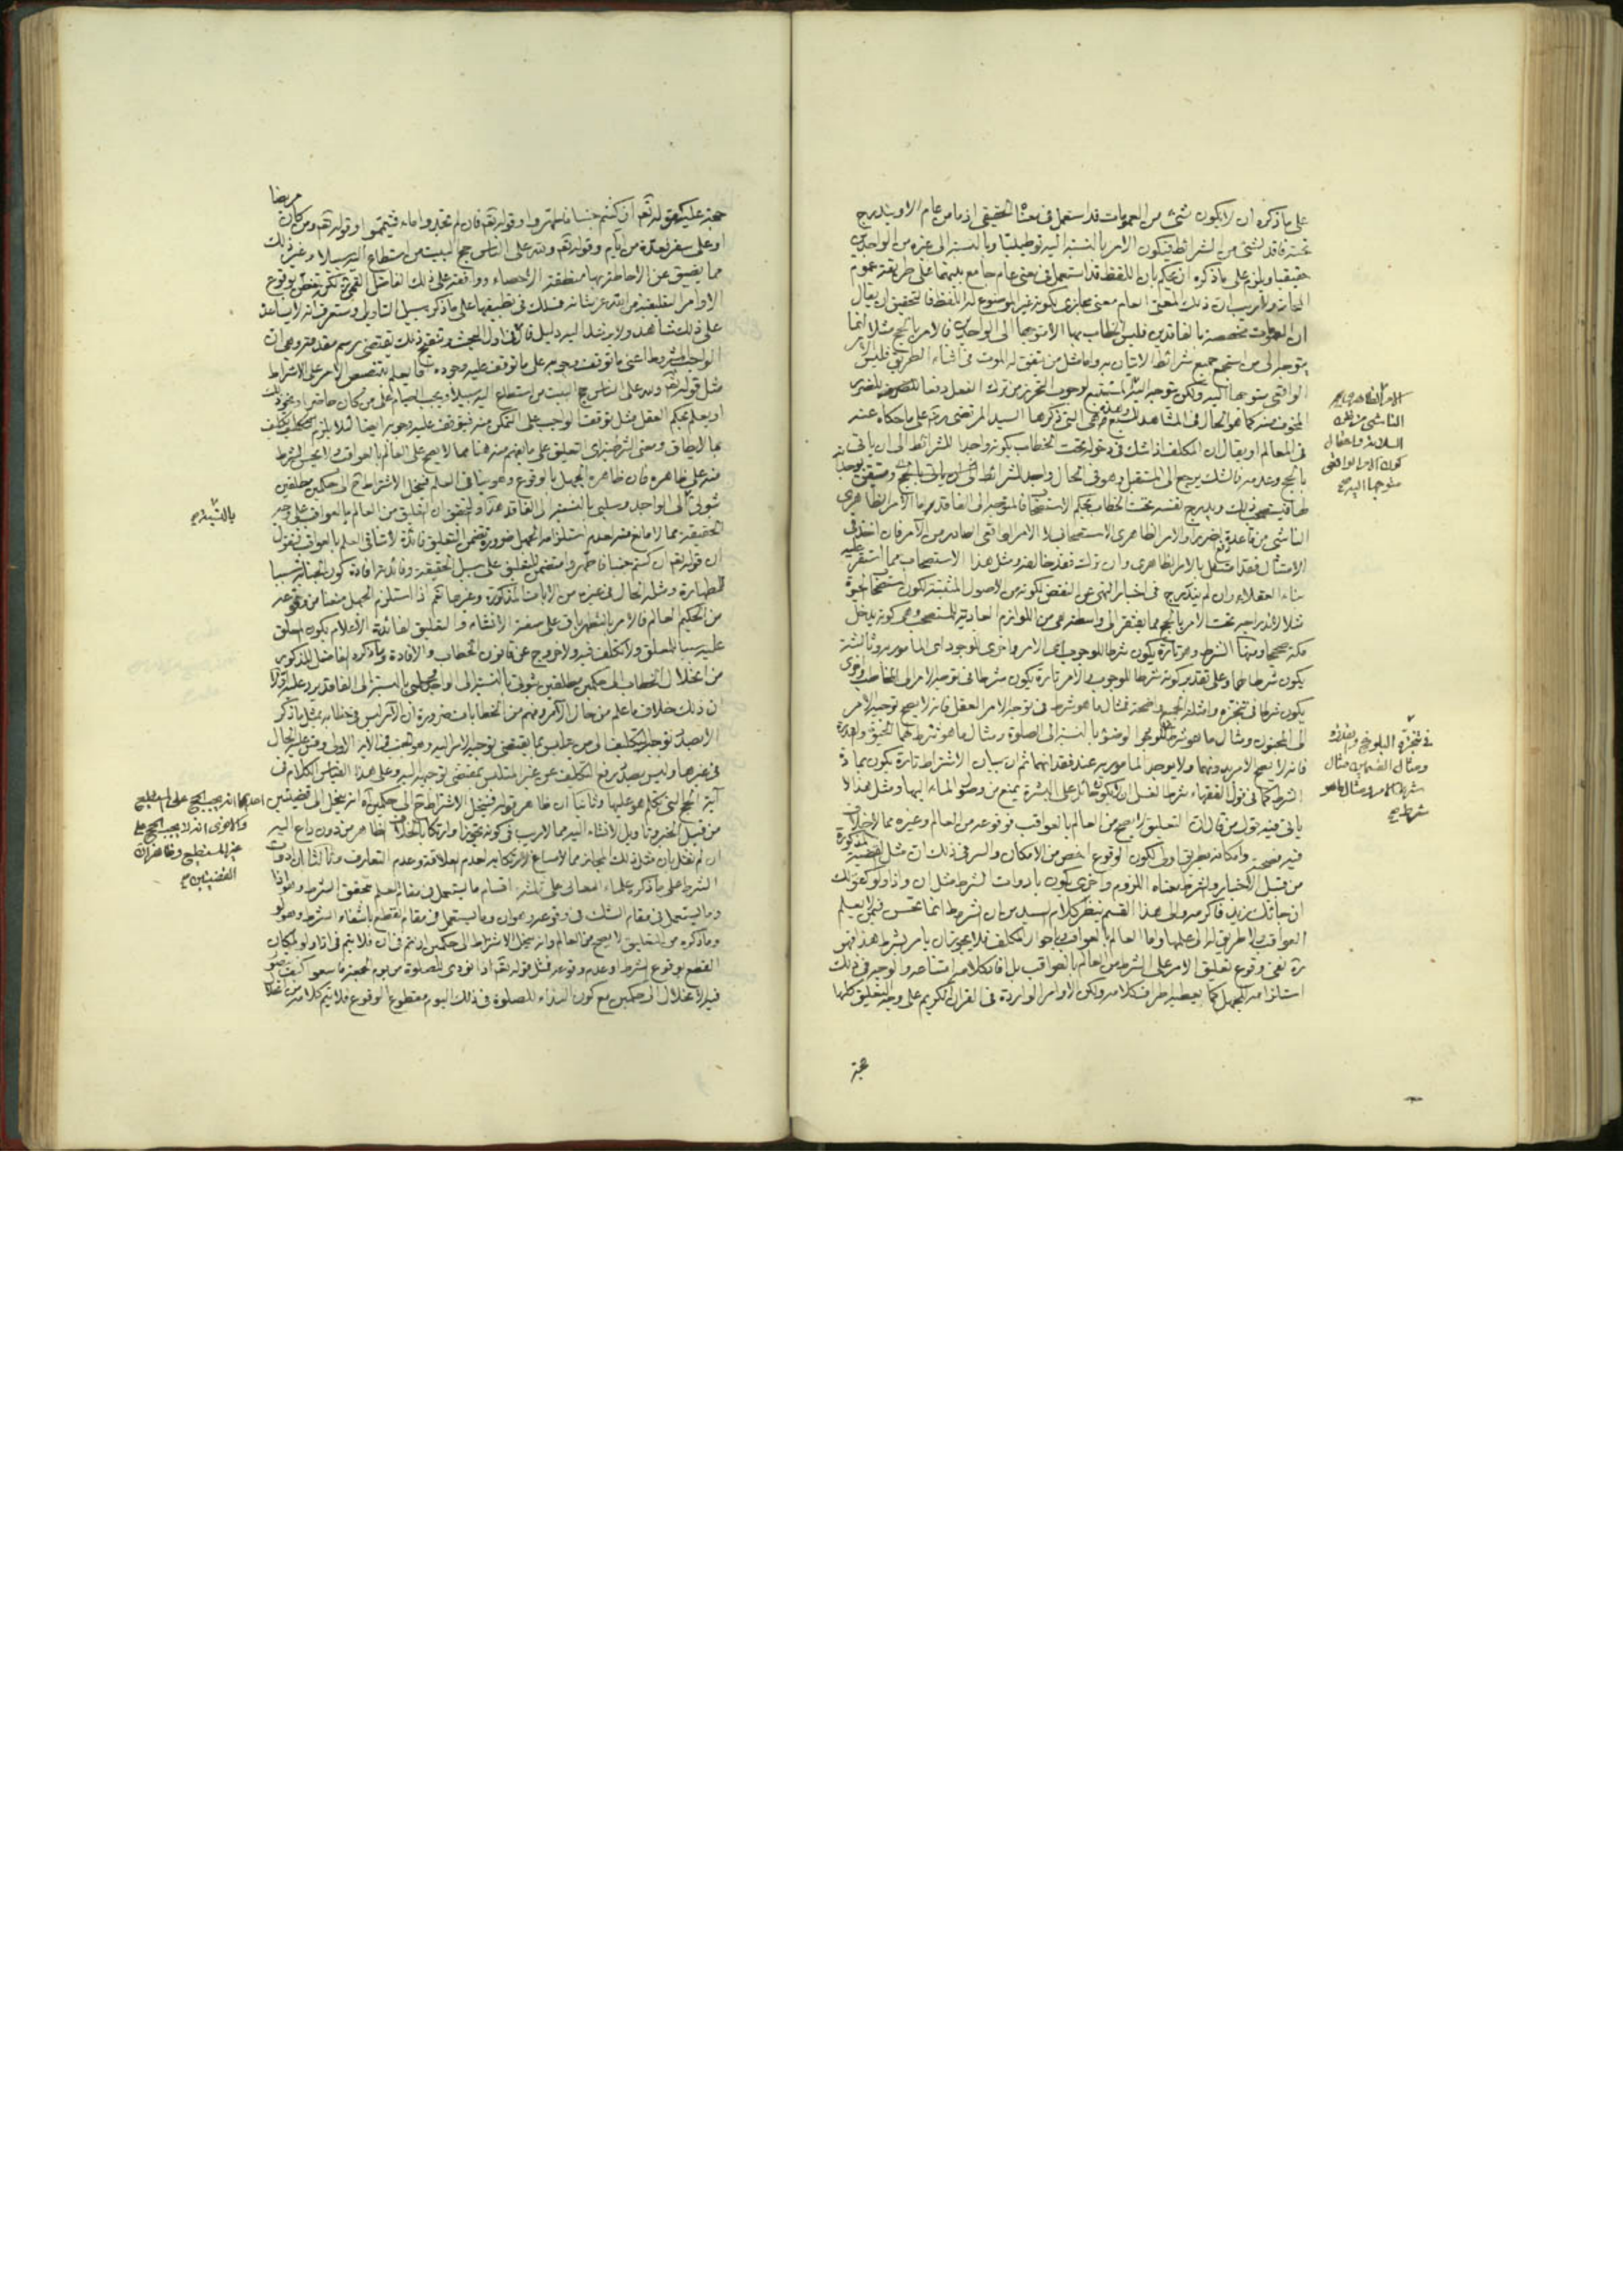 على ما ذكره ان لا يكون شئ من العمومات قد استعمل في معناه الحقيقي اذ ما من عام الا ويندرج
تحته فاقد لشئ من الشرائط فيكون الامر بالنسبة اليه توطينيا وبالنسبة الى غيره من الواجدين
حقيقيا ويلزم على ما ذكره ان يحكم بان اللفظ قد استعمل في معنى عام جامع بينهما على طريقة عموم
المجاز ولا ريب ان ذلك المعنى العام معنى مجازي لكونه غير الموضوع له اللفظ فالتحقيق ان يقال
ان العمومات مخصصة بالفاقدين فليس الخطاب بها الا متوجها الى الواجدين فالامر بالحج مثلا انما
يتوجه الى من استجمع جميع شرائط الاتيان به واما مثل من يتفق له الموت في اثناء الطريق فليس الامر
الواقعي متوجها اليه ولكن يتوجه اليه
المخوف منه كما هو الحال في المشاهد للسبع وهي التي ذكرها السيد المرتضى ره على ما حكاه عنه
في المعالم او يقال ان المكلف اذا شك في دخوله تحت الخطاب بكونه واجدا للشرائط الى ان ياتي
بالحج وعدمه فالشك يرجع الى المستقبل وهو في الحال واجد للشرائط
فيستصحب ذلك ويدرج نفسه تحت الخطاب بحكم الاستصحاب فالمتوجه الى الفاقد هو الامر الظاهري
الناشي من قاعدة الضرر او الامر الظاهري الاستصحابي لا الامر الواقعي الصادر من الآمر فان اخذ في
الامتثال فقد امتثل بالامر الظاهري وان ترك فقد خالفه ومثل هذا الاستصحاب مما استقر عليه
بناء العقلاء وان لم يندرج في اخبار النهي عن النقض لكونه من الاصول المثبتة لكون استصحاب الحيوة
مثلا لاندراجه تحت الامر بالحج مما يفتقر الى واسطة هي من اللوازم العادية للمستصحب وهي كونه يدخل
مكة صحيحا ومنها الشرط وهو تارة يكون شرطا للوجوب اعني الامر واخرى للوجود اعني المامور به وثالثة
يكون شرطا لهما وعلى تقدير كونه شرطا للوجوب والامر تارة يكون شرطا في توجيه الامر الى المخاطب واخرى
يكون شرطا في تنجزه وامثلة الجميع واضحة فمثال ما هو شرط في توجه الامر العقل فانه لا يصح توجيه الامر
الى المجنون ومثال ما هو شرط للوجود الوضوء بالنسبة الى الصلوة ومثال ما هو شرط لهما الحيوة والقدرة
فانه لا يصح الامر بدونهما ولا يوجد المامور به عند فقدانهما ثم ان بيان الاشتراط تارة يكون بمادة
الشرط كما في قول الفقهاء شرط الغسل ان لا يكون حائل على البشرة يمنع من وصول الماء اليها ومثل هذا لا
ياتي فيه قول من قال ان التعليق لا يصح من العالم بالعواقب فوقوعه من العالم وغيره مما لا خلاف
فيه فصحته وامكانه بطريق اولى لكون الوقوع اخص من الامكان والسر في ذلك ان مثل القضية المذكورة
من قبيل الاخبار والشرط معناه اللزوم واخرى يكون بادوات الشرط مثل ان واذا ولو كقولك
ان جائك زيد فاكرمه والى هذا القسم ينظر كلام السيد من ان الشرط انما يحسن فيمن لا يعلم
العواقب ولا طريق له الى علمها واما العالم بالعواقب وباحوال المكلف فلا يجوز ان يامر بشرط هذا فهو
ره نفى وقوع تعليق الامر على الشرط من العالم بالعواقب بل افاد كلامه امتناعه والوجه في ذلك
استلزامه الجهل كما يعطيه اطراف كلامه ولكن الاوامر الواردة في القران الكريم على وجه التعليق كلها
الامر الظاهري
الناشي من ظن
السلامة واحتمال
كون الامر الواقعي
متوجها اليه صح
في تنجزه البلوغ
ومثال القسمين مثال
شرط الامر ومثال ما هو
شرط صح
حجة عليه كقوله تعم ان كنتم جنبا فاطهروا وقوله تعم فان لم تجدوا ماء فتيمموا وقوله تعم ومن كان مريضا
او على سفر فعدة من ايام وقوله تعم ولله على الناس حج البيت من استطاع اليه سبيلا وغير ذلك
مما يضيق عن الاحاطة بها منطقة الاحصاء ووافقه على ذلك الفاضل القمي ره لكن تفصى بوقوع
الاوامر التعليقية من الله عز شانه فسلك في تطبيقها على ما ذكر سبيل التاويل وستعرف انه لا يساعد
على ذلك شاهد ولا يرشد اليه دليل قال في اول المبحث وتنقيح ذلك يقتضي رسم مقدمة وهي ان
الواجب المشروط اعني ما توقف وجوبه على ما توقف عليه وجوده قد يعلم بتنصيص الامر على الاشتراط
مثل قوله تعم ولله على الناس حج البيت من استطاع اليه سبيلا ويجب الصيام على من كان حاضرا ونحو ذلك
او يعلم بحكم العقل مثل توقف الواجب على التمكن منه فيتوقف عليه وجوبه ايضا لئلا يلزم التكليف
بما لا يطاق ومعنى الشرطية اي التعليق على ما يفهم منه هنا مما لا يصح على العالم بالعواقب ولا يحسن الشرط
منه على ظاهره فان ظاهره الجهل بالوقوع وهو ينافي العلم فينحل الاشتراط ح الى حكمين مطلقين
ثبوتي الى الواجد وسلبي بالنسبة الى الفاقد هذا والتحقيق ان التعليق من العالم بالعواقب على وجه
الحقيقة مما لا مانع منه لعدم استلزامه الجهل ضرورة تضمن التعليق فائدة لا تنافي العلم بالعواقب فنقول
ان قوله تعم ان كنتم جنبا فاطهروا متضمن للتعليق على سبيل الحقيقة وفائدته افادة كون الجنابة سببا
للطهارة ومثله الحال في غيره من الايات المذكورة وغيرها نعم اذا استلزم الجهل منعنا من وقوعه
من الحكيم العالم فالامر بالتطهر باق على صفة الانشاء والتعليق لفائدة الاعلام بكون المعلق
عليه سببا للمعلق ولا تكلف فيه ولا خروج عن قانون الخطاب والافادة وما ذكره الفاضل المذكور
من انحلال الخطاب الى حكمين مطلقين ثبوتي بالنسبة الى الواجد وسلبي بالنسبة الى الفاقد يرد عليه اولا
ان ذلك خلاف ما علم من حال الآمر وفهم من الخطابات ضرورة ان الآمر ليس في خطابه بمثل ما ذكر
الا بصدد توجيه التكليف الى من تلبس بما يقتضي توجيه الامر اليه وهو الجنب في الآية الاولى وقس عليه الحال
في غيرها وليس بصدد رفع التكليف عن غير المتلبس بمقتضى توجيهه اليه وعلى هذا القياس الكلام في
آية الحج التي تكلم هو عليها وثانيا ان ظاهر قوله فينحل الاشتراط ح الى حكمين اه انه ينحل الى قضيتين
من قبيل الخبر وتاويل الانشاء اليه مما لا ريب في كونه تجوزا وارتكابا لخلاف الظاهر من دون داع اليه
ان لم نقل بان مثل ذلك المجاز مما لا مساغ لارتكابه لعدم العلاقة وعدم التعارف وثالثا ان ادوات
الشرط على ما ذكره علماء المعاني على ثلثة اقسام ما يستعمل في مقام العلم بتحقق الشرط وهو اذا
وما يستعمل في مقام الشك في وقوعه وهو ان وما يستعمل في مقام القطع بانتفاء الشرط وهو لو
وما ذكره من التعليق لا يصح من العالم وانه ينحل الاشتراط الى حكمين ان تم في ان فلا يتم في اذا ولو لمكان
القطع بوقوع الشرط او عدم وقوعه فمثل قوله تعم اذا نودي للصلوة من يوم الجمعة فاسعوا كيف يتصور
فيه الانحلال الى حكمين مع كون النداء للصلوة في ذلك اليوم مقطوع الوقوع فلا يتم كلامه من انحلال
بالنسبة صح
احدهما انه يجب الحج على المستطيع
والاخرى انه لا يجب الحج على
غير المستطيع وظاهر ان
القضيتين صح